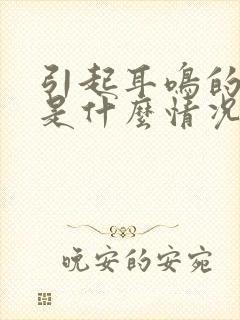 引起耳鳴的
是什麼情况
晚安的安宛